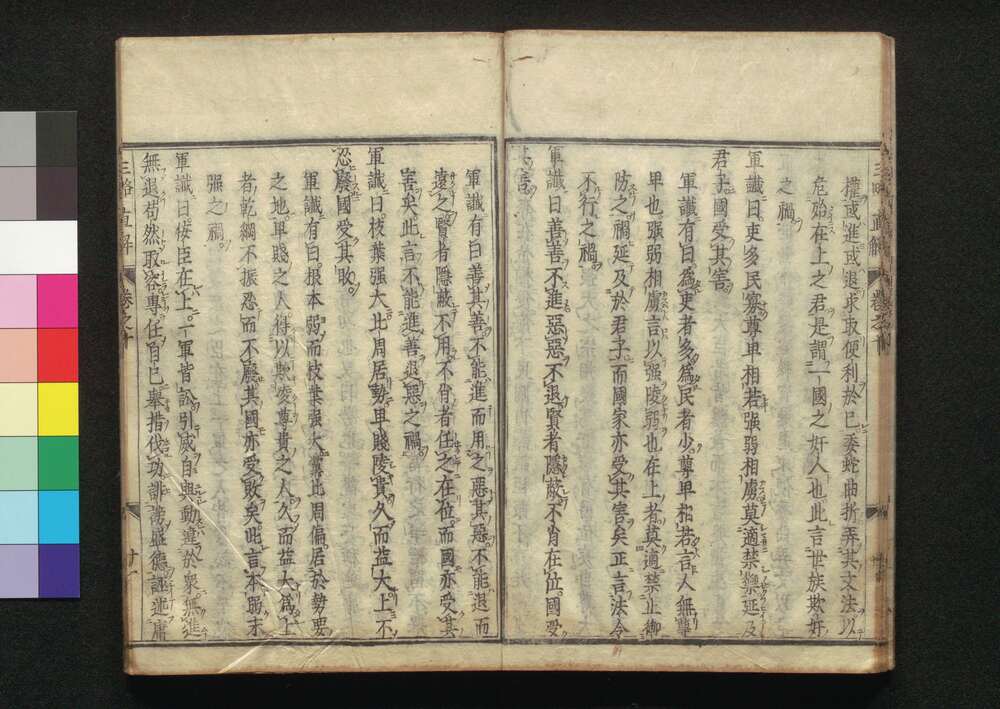 權或進或退求取便利於已委蛇曲折弄其文法以
危殆在上之君是謂一國之奸人也此言世族欺奸
之禍
軍讖曰吏多民寡尊卑相若强弱相虜莫適禁禦延及
君子國受其害
軍讖有曰爲吏者多爲民者少尊卑相若言人無尊
卑也强弱相虜言以强陵弱也在上者莫適禁止禦
防之禍延及於君子而國家亦受其害矣正言法令
不行之禍
軍讖曰善善不進惡惡不退賢者隱蔽不肖在位國受
其害
軍讖有曰善其善不能進而用之惡其惡不能退而
遠之賢者隱蔽不用不肖者任之在位而國亦受其
害矣此言不能進善退惡之禍
軍讖曰枝葉强大比周居勢卑賤陵貴久而益大上不
忍廢國受其敗
軍讖有曰根本弱而枝葉强大黨比周偏居於勢要
之地卑賤之人得以欺陵尊貴之人久而益大爲上
者乾綱不振忍而不廢其國亦受敗矣此言本弱末
强之禍
軍讖曰佞臣在上一軍皆訟引威自與動違於衆無進
無退苟然取容專任自巳舉措伐功誹謗盛德誣述庸
三略直解 卷之十
廿一